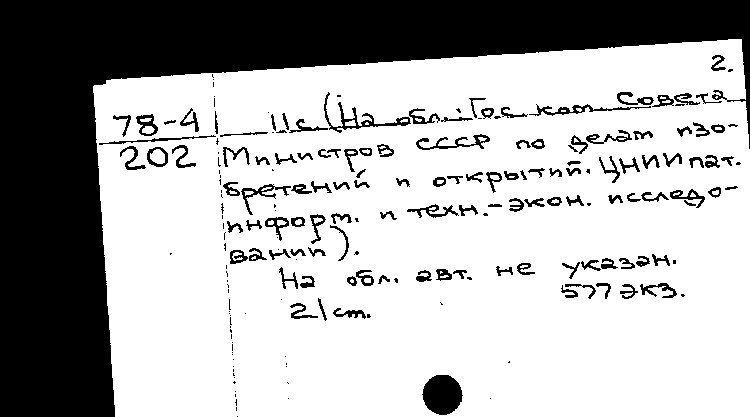 2.
78-4 11с. (На обл.: Гос. ком. Совета
202 Министров СССР по делам изо-
бретений и открытий. ЦНИИ пат.
информ. и техн.-экон. исследо-
ваний).
На обл. авт. не указан.
21 ст. 577 экз.